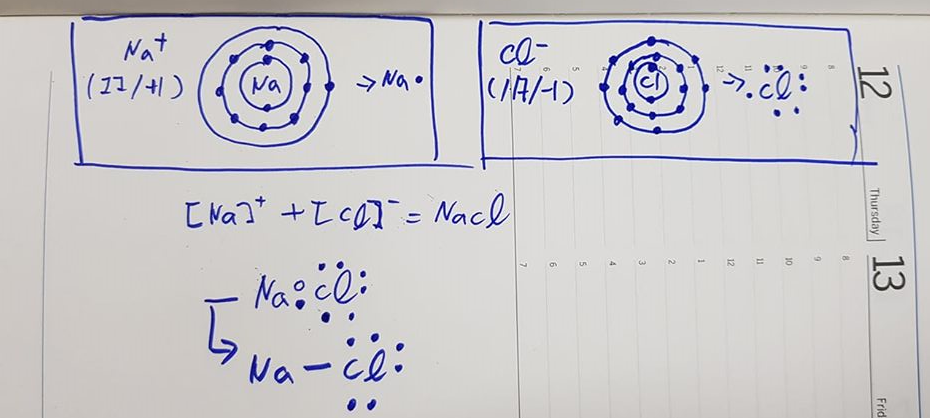 Na⁺
(11/+1)
Na
→ Na •
Cl⁻
(17/-1)
Cl
→ Cl
[Na]⁺ + [Cl]⁻ = NaCl
Na Cl
Na – Cl
12
Thursday
13
Frid
7 6 5 4 3 2 1 12 11 10 9 8